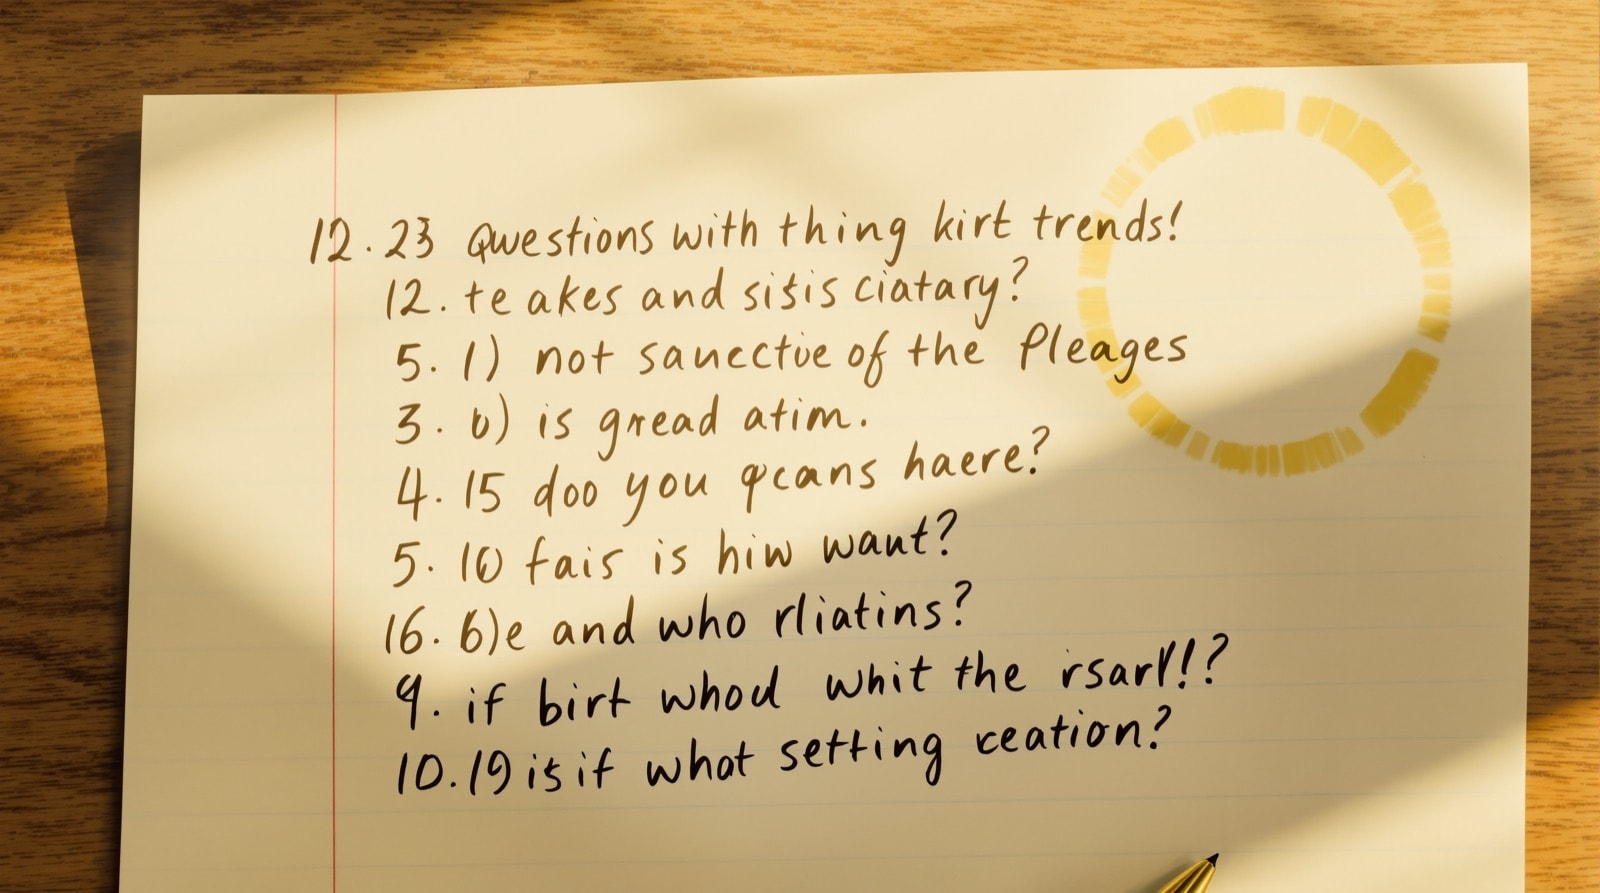 12. 23 Questions with thing kirt trends!
12. te akes and sisis ciatary?
5. 1) not sanectve of the Pleages
3. b) is gread atim.
4. 15 doo you qcans haere?
5. 10 fais is hiw want?
16. 6)e and who rliatins?
9. if birt whod whit the rsarl!?
10. 19 is if what setting ceation?